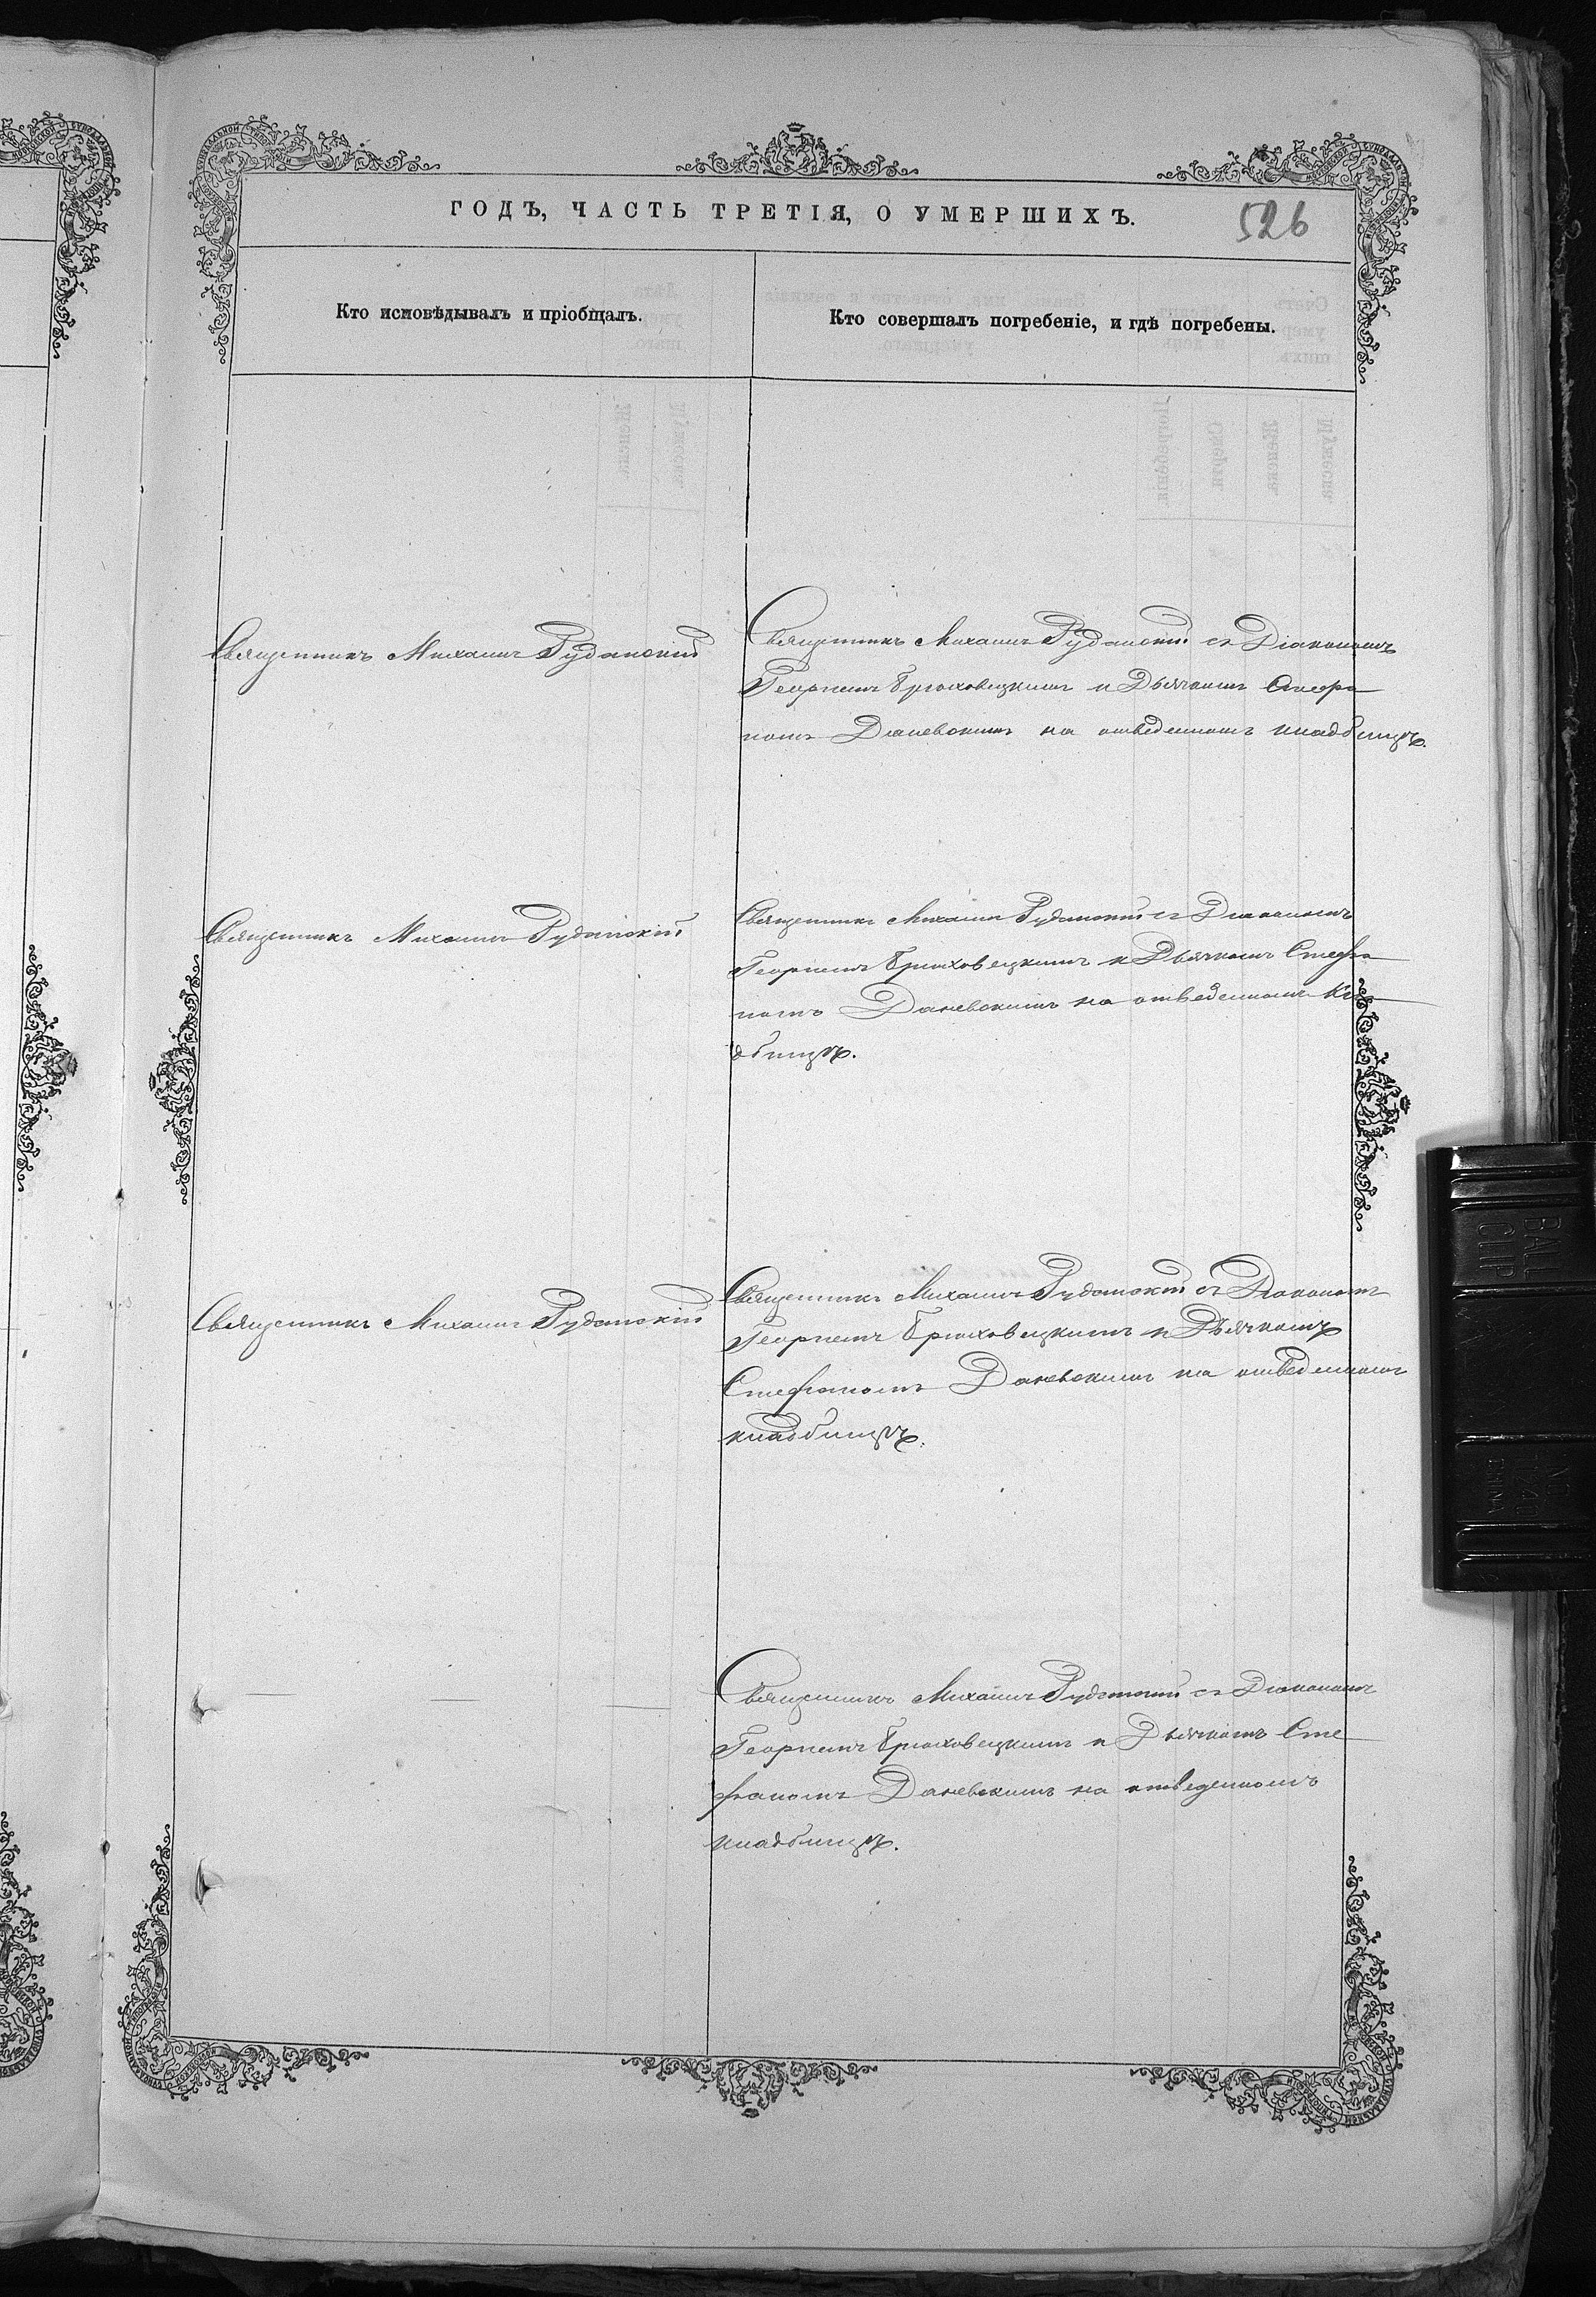 ГОДЪ, ЧАСТЬ ТРЕТІЯ, О УМЕРШИХЪ.
526
Кто исповѣдывалъ и пріобщалъ.
Кто совершалъ погребеніе, и гдѣ погребены.
Священникъ Михаилъ Руданскій
Священникъ Михаилъ Руданскій съ Діакономъ
Георгіемъ Брюховецкимъ и Дьячкомъ Стефа
номъ Даневскимъ на отведенномъ кладбищѣ.
Священникъ Михаилъ Руданскій
Священникъ Михаилъ Руданскій съ Діакономъ
Георгіемъ Брюховецкимъ и Дьячкомъ Стефа
номъ Даневскимъ на отведенномъ кла
дбищѣ.
Священникъ Михаилъ Руданскій
Священникъ Михаилъ Руданскій съ Діакономъ
Георгіемъ Брюховецкимъ и Дьячкомъ
Стефаномъ Даневскимъ на отведенномъ
кладбищѣ.
Священникъ Михаилъ Руданскій съ Діакономъ
Георгіемъ Брюховецкимъ и Дьячкомъ Сте
фаномъ Даневскимъ на отведенномъ
кладбищѣ.
BALL
CLIP
NO
1240
CHINA